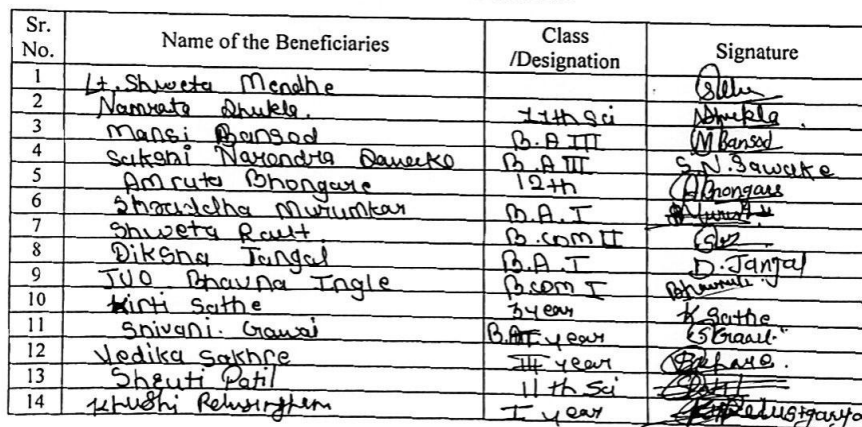 Sr. No. Name of the Beneficiaries Class /Designation Signature
1 Lt. Shweta Mendhe
2 Namrata Shukla. 11th Sci Shukla.
3 Mansi Bansod B.A III M Bansod
4 Sakshi Narendra B.A III S.N. Sawake
5 Amruta Bhongare 12th A Bhongare
6 Shraddha Murumkar B.A. I
7 Shweta Raut. B.com II
8 Diksha Janjal B.A. I D. Janjal
9 JUO. Bhavna Ingle B.com I
10 Kirti Sathe 3 year K Sathe
11 Shivani. Gawai B.A I year
12 Vedika Sakhre III year
13 Shruti Patil 11th Sci
14 Khushi I year